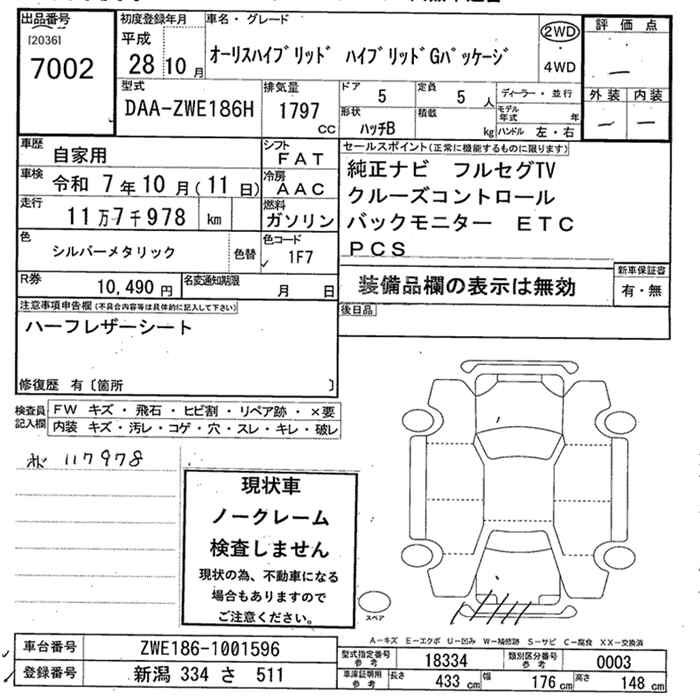 出品番号
[2036]
7002
初度登録年月
平成
28 10 月
車名・グレード
オーリスハイブリッド ハイブリッドGパッケージ
2WD
・
4WD
評価点
―
外装 内装
― ―
型式
DAA-ZWE186H
排気量
1797
cc
ドア
5
定員
5 人
ディーラー・並行
形状
ハッチB
積載
kg
モデル年式 年
ハンドル 左・右
車歴
自家用
シフト
FAT
車検
令和 7年10月(11日)
冷房
AAC
走行
11万7千978 km
燃料
ガソリン
色
シルバーメタリック
色替
色コード
1F7
R券
10,490円
名変通知期限
月 日
セールスポイント(正常に機能するものに限ります)
純正ナビ フルセグTV
クルーズコントロール
バックモニター ETC
PCS
装備品欄の表示は無効
新車保証書
有・無
後日品
注意事項申告欄(不具合内容等は具体的に記入して下さい)
ハーフレザーシート
修復歴 有〔箇所 〕
検査員記入欄
FW キズ・飛石・ヒビ割・リペア跡・×要
内装 キズ・汚レ・コゲ・穴・スレ・キレ・破レ
117978
現状車
ノークレーム
検査しません
現状の為、不動車になる
場合もありますので
ご注意ください。
スペア
A―キズ E―エクボ U―凹み W―補修跡 S―サビ C―腐食 XX―交換済
車台番号
ZWE186-1001596
登録番号
新潟 334 さ 511
型式指定番号
参考
18334
類別区分番号
参考
0003
車庫証明用
参考
長さ
433 cm
幅
176 cm
高さ
148 cm